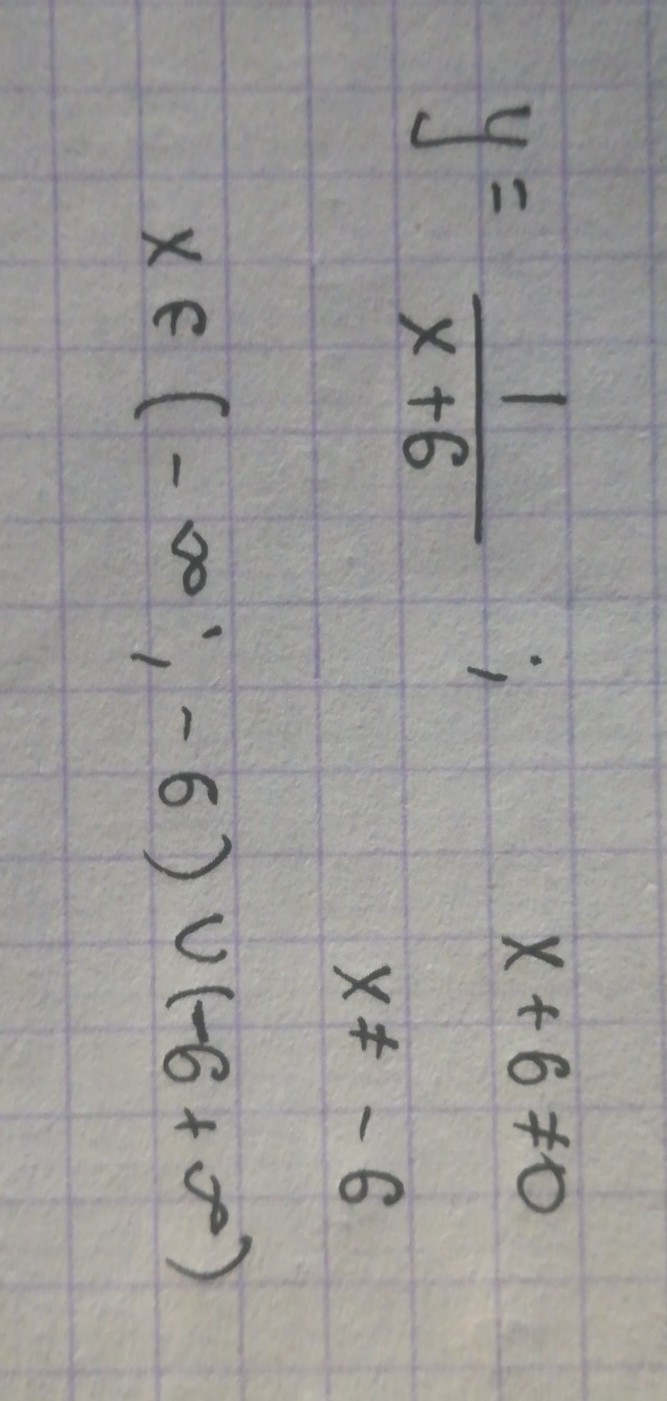 y = 1/(x+6) ; x + 6 ≠ 0
x ≠ - 6
x ∈ (- ∞; - 6) ∪ (-6 + ∞)